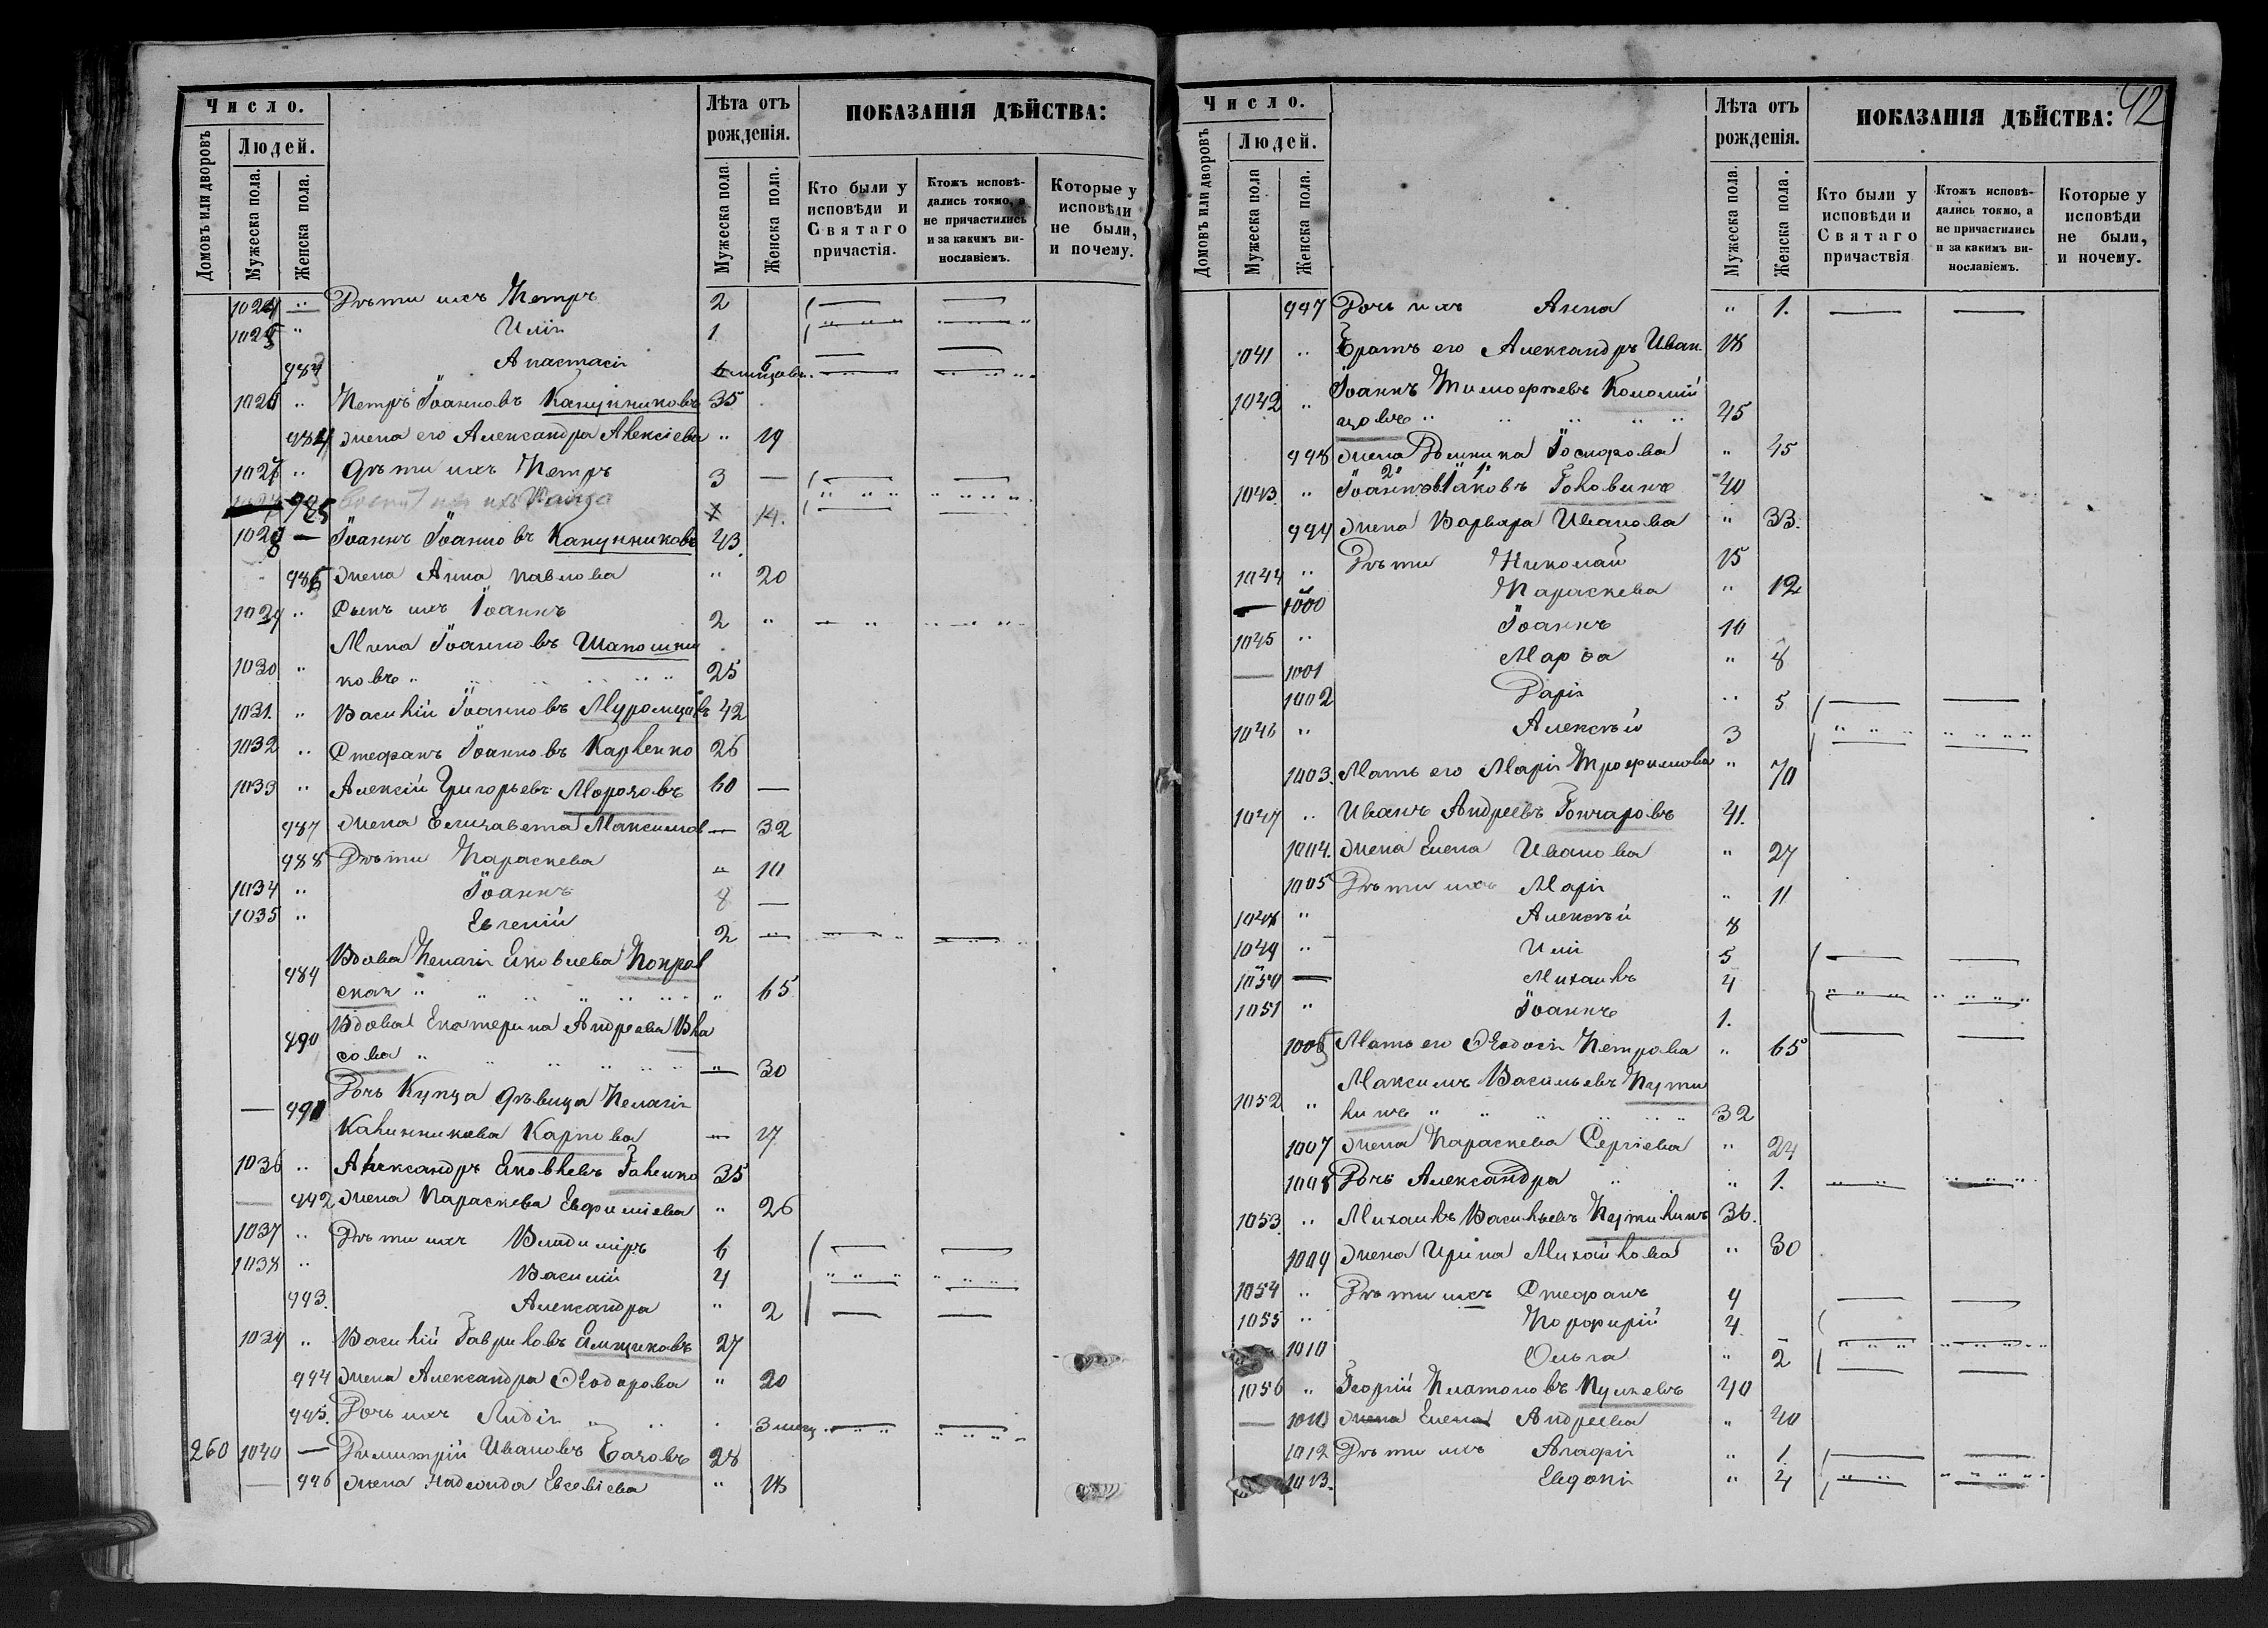 Число.
Домовъ или дворовъ
Людей.
Мужеска пола.
Женска пола.
Лѣта отъ рожденія.
Мужеска пола.
Женска пола.
ПОКАЗАНІЯ ДѢЙСТВА:
Кто были у исповѣди и Святаго причастія.
Ктожъ исповѣ-
дались токмо, а
не причастились
и за какимъ ви-
нославіемъ.
Которые у исповѣди не были, и почему.
1024 " Дѣти ихъ Петръ 2
1025 " Илія 1
983 Анастасія 6 мѣсяцевъ
1026 " Петръ Іоанновъ Канунниковъ 35
984 Жена его Александра Алексіева " 19
1027 " Дѣти ихъ Петръ 3 —
985 14.
1028 — Іоаннъ Іоанновъ Канунниковъ 43.
986 Жена Анна Павлова " 20
1029 " Сынъ ихъ Іоаннъ 2 "
Мина Іоанновъ Шапошни
1030 " ковъ " 25
1031. " Василій Іоанновъ Муромцовъ 42
1032 " Стефанъ Іоанновъ Карпенко 26
1033 " Алексій Григорьевъ Морозовъ 60 —
987 Жена Елизавета Максимов — 32
988 Дѣти Параскева " 10
1034 " Іоаннъ 8 —
1035 " Евгеній 2 —
989 Вдова Пелагія Яковлева Покров
ская " " 65
990 Вдова Екатерина Андреева Вла
сова " " 30
— 991 Дочь Купца дѣвица Пелагія
Калинникова Карпова — 17
1036 " Александръ Яковлевъ Галенко 35
— 992 Жена Параскева Евфиміева " 26
1037 " Дѣти ихъ Владиміръ 6
1038 " Василій 4
993. Александра " 2
1039 " Василій Гавриловъ Ямщиковъ 27
994 Жена Александра Ѳеодорова " 20
995. Дочь ихъ Лидія " 3 мѣсяц.
260 1040 — Димитрій Ивановъ Бачовъ 28
— 996 Жена Надежда Евсевіева " 18
42
Число.
Домовъ или дворовъ
Людей.
Мужеска пола
Женска пола.
Лѣта отъ рожденія.
Мужеска пола.
Женска пола.
ПОКАЗАНІЯ ДѢЙСТВА:
Кто были у исповѣди и Святаго причаствія
Ктожъ исповѣ-
дались токмо, а
не причастились
и за какимъ ви-
нославіемъ.
Которые у исповѣди не были, и почему.
997 Дочь ихъ Анна " 1.
1041 " Братъ его Александръ Иван. 18
1042 " Іоаннъ Тимоѳеевъ Коломій
цовъ " 45
998 Жена Домника Іосифова " 45
1043 " Іоанновъ 2º Іаковъ 1º Головинъ 40
999 Жена Варвара Иванова " 33.
1044 " Дѣти Николай 15
— 1000 Параскева " 12
1045 " Іоаннъ 10
— 1001 Марѳа " 8
1002 Дарія " 5
1046 " Алексѣй 3
1003. Мать его Марія Трофимова " 70
1047 " Иванъ Андреевъ Гончаровъ 41.
1004. Жена Елена Иванова " 27
1005 Дѣти ихъ Марія " 11
1048 " Алексѣй 8
1049 " Илія 5
1050 — Михаилъ 4
1051 " Іоаннъ 1.
1006 Мать его Ѳеодосія Петрова " 65
Максимъ Васильевъ Пути
1052 " линъ " 32
1007 Жена Параскева Сергіева " 24
1008 Дочь Александра " 1.
1053 " Михаилъ Васильевъ Путилинъ 36.
1009 Жена Ирина Михайлова " 30
1054 " Дѣти ихъ Стефанъ 9
1055 " Порфирій 4
1010 Ольга " 2
1056 " Георгій Платоновъ Пушневъ 40
— 1011 Жена Елена Андреева " 40
1012 Дѣти ихъ Агафія " 1.
1013. Евдокія " 4